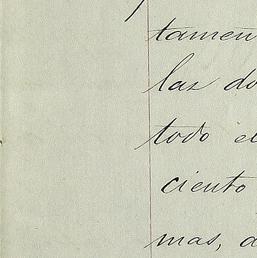 tamen
las do
todo el
ciento
mas, a